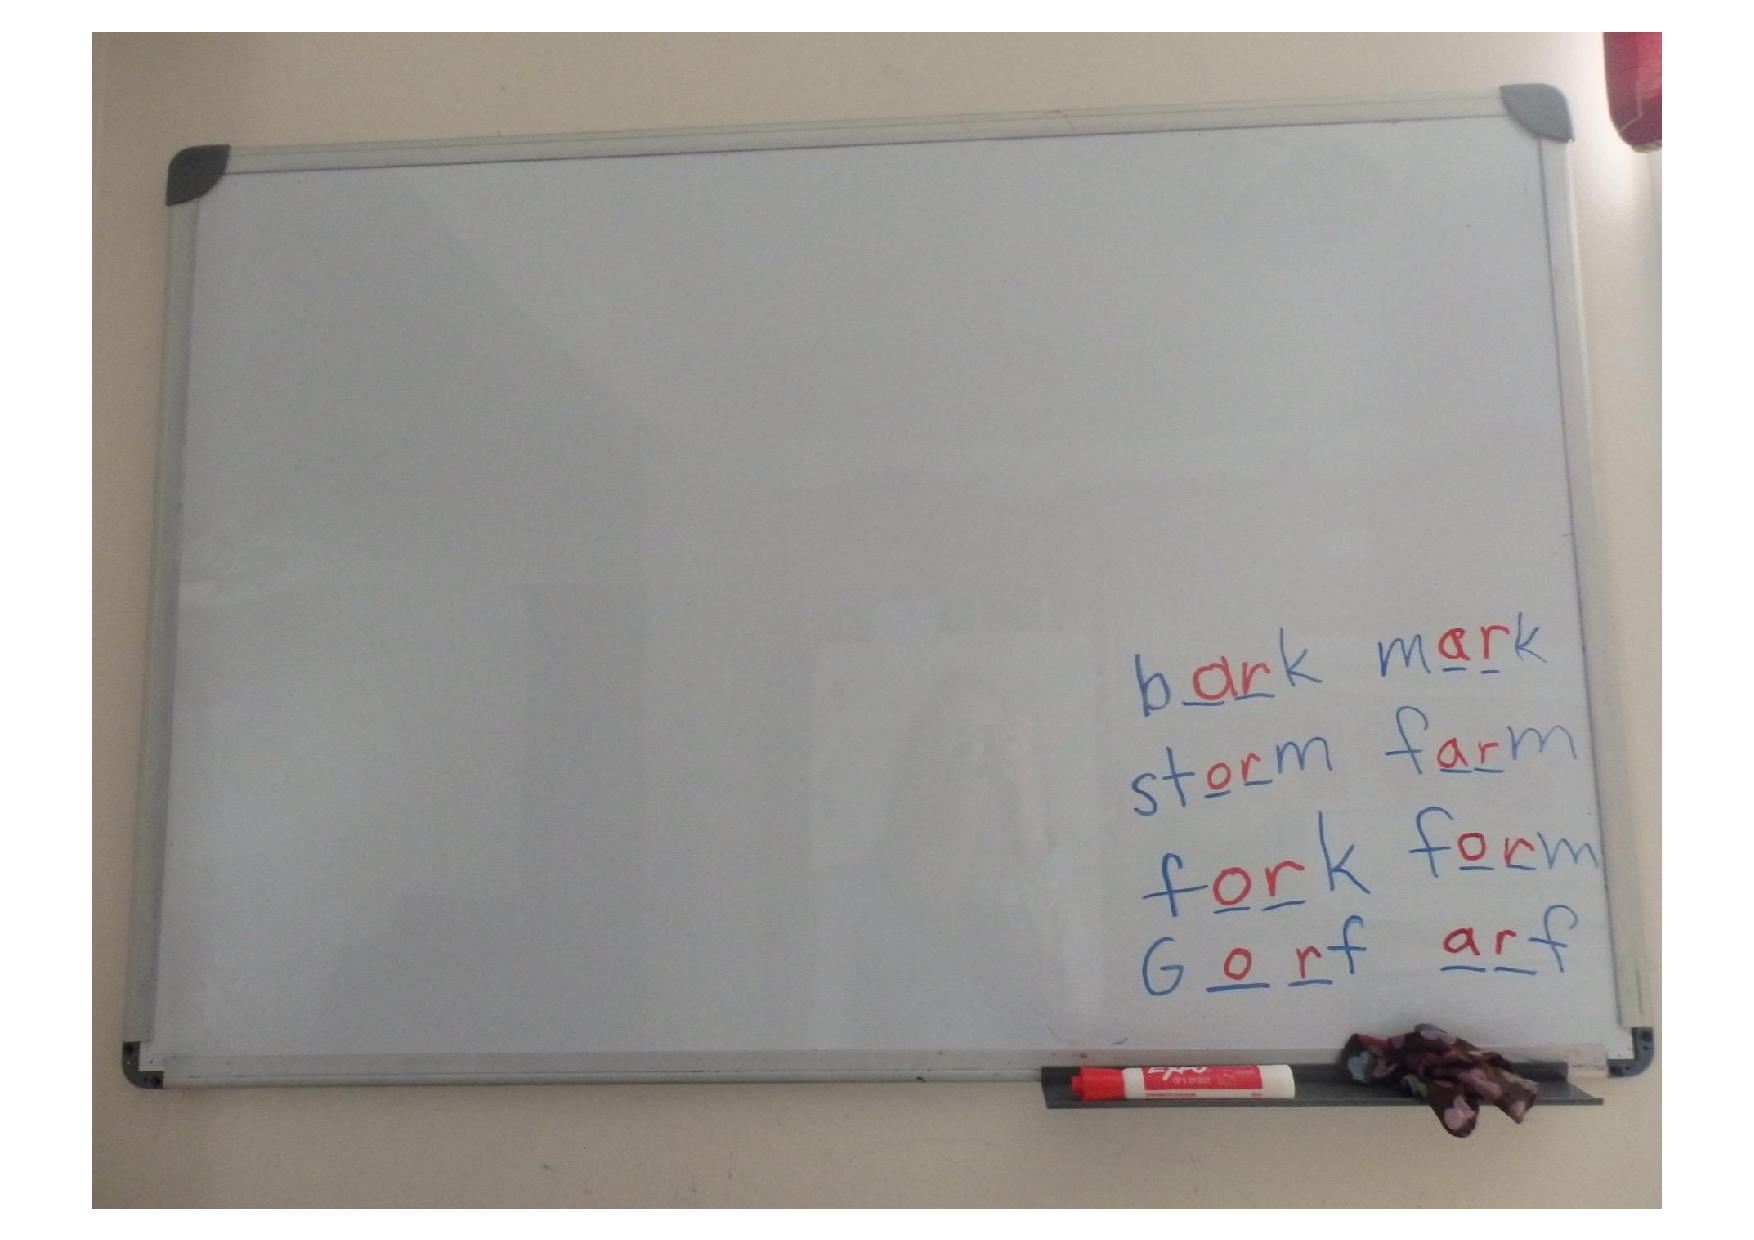 bark mark
storm farm
fork form
Gorf arf
EXPO
dry erase